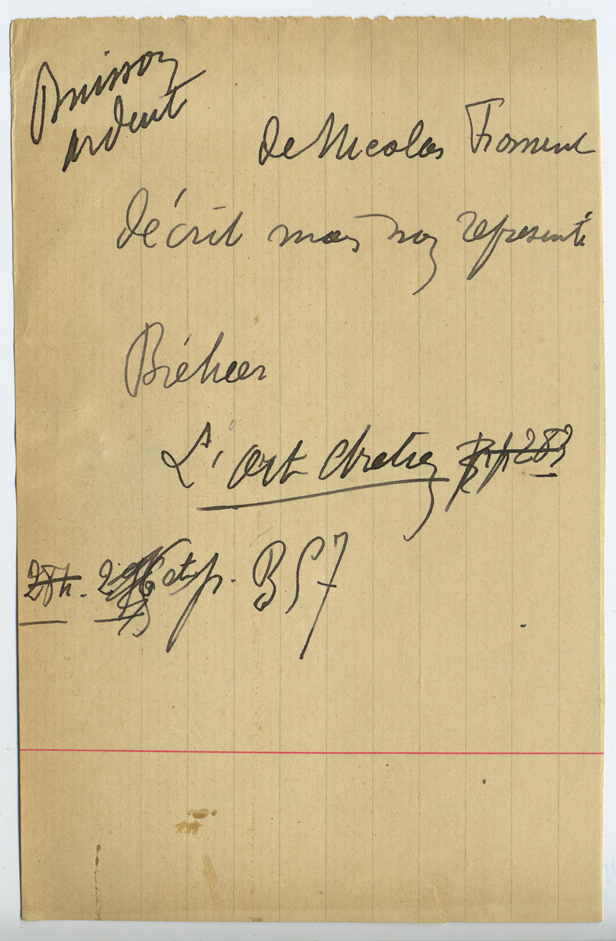 Buisson
ardent
de Nicolas Froment
décrit mais non représenté
Bréhier
L'art chrétien
et p. 357